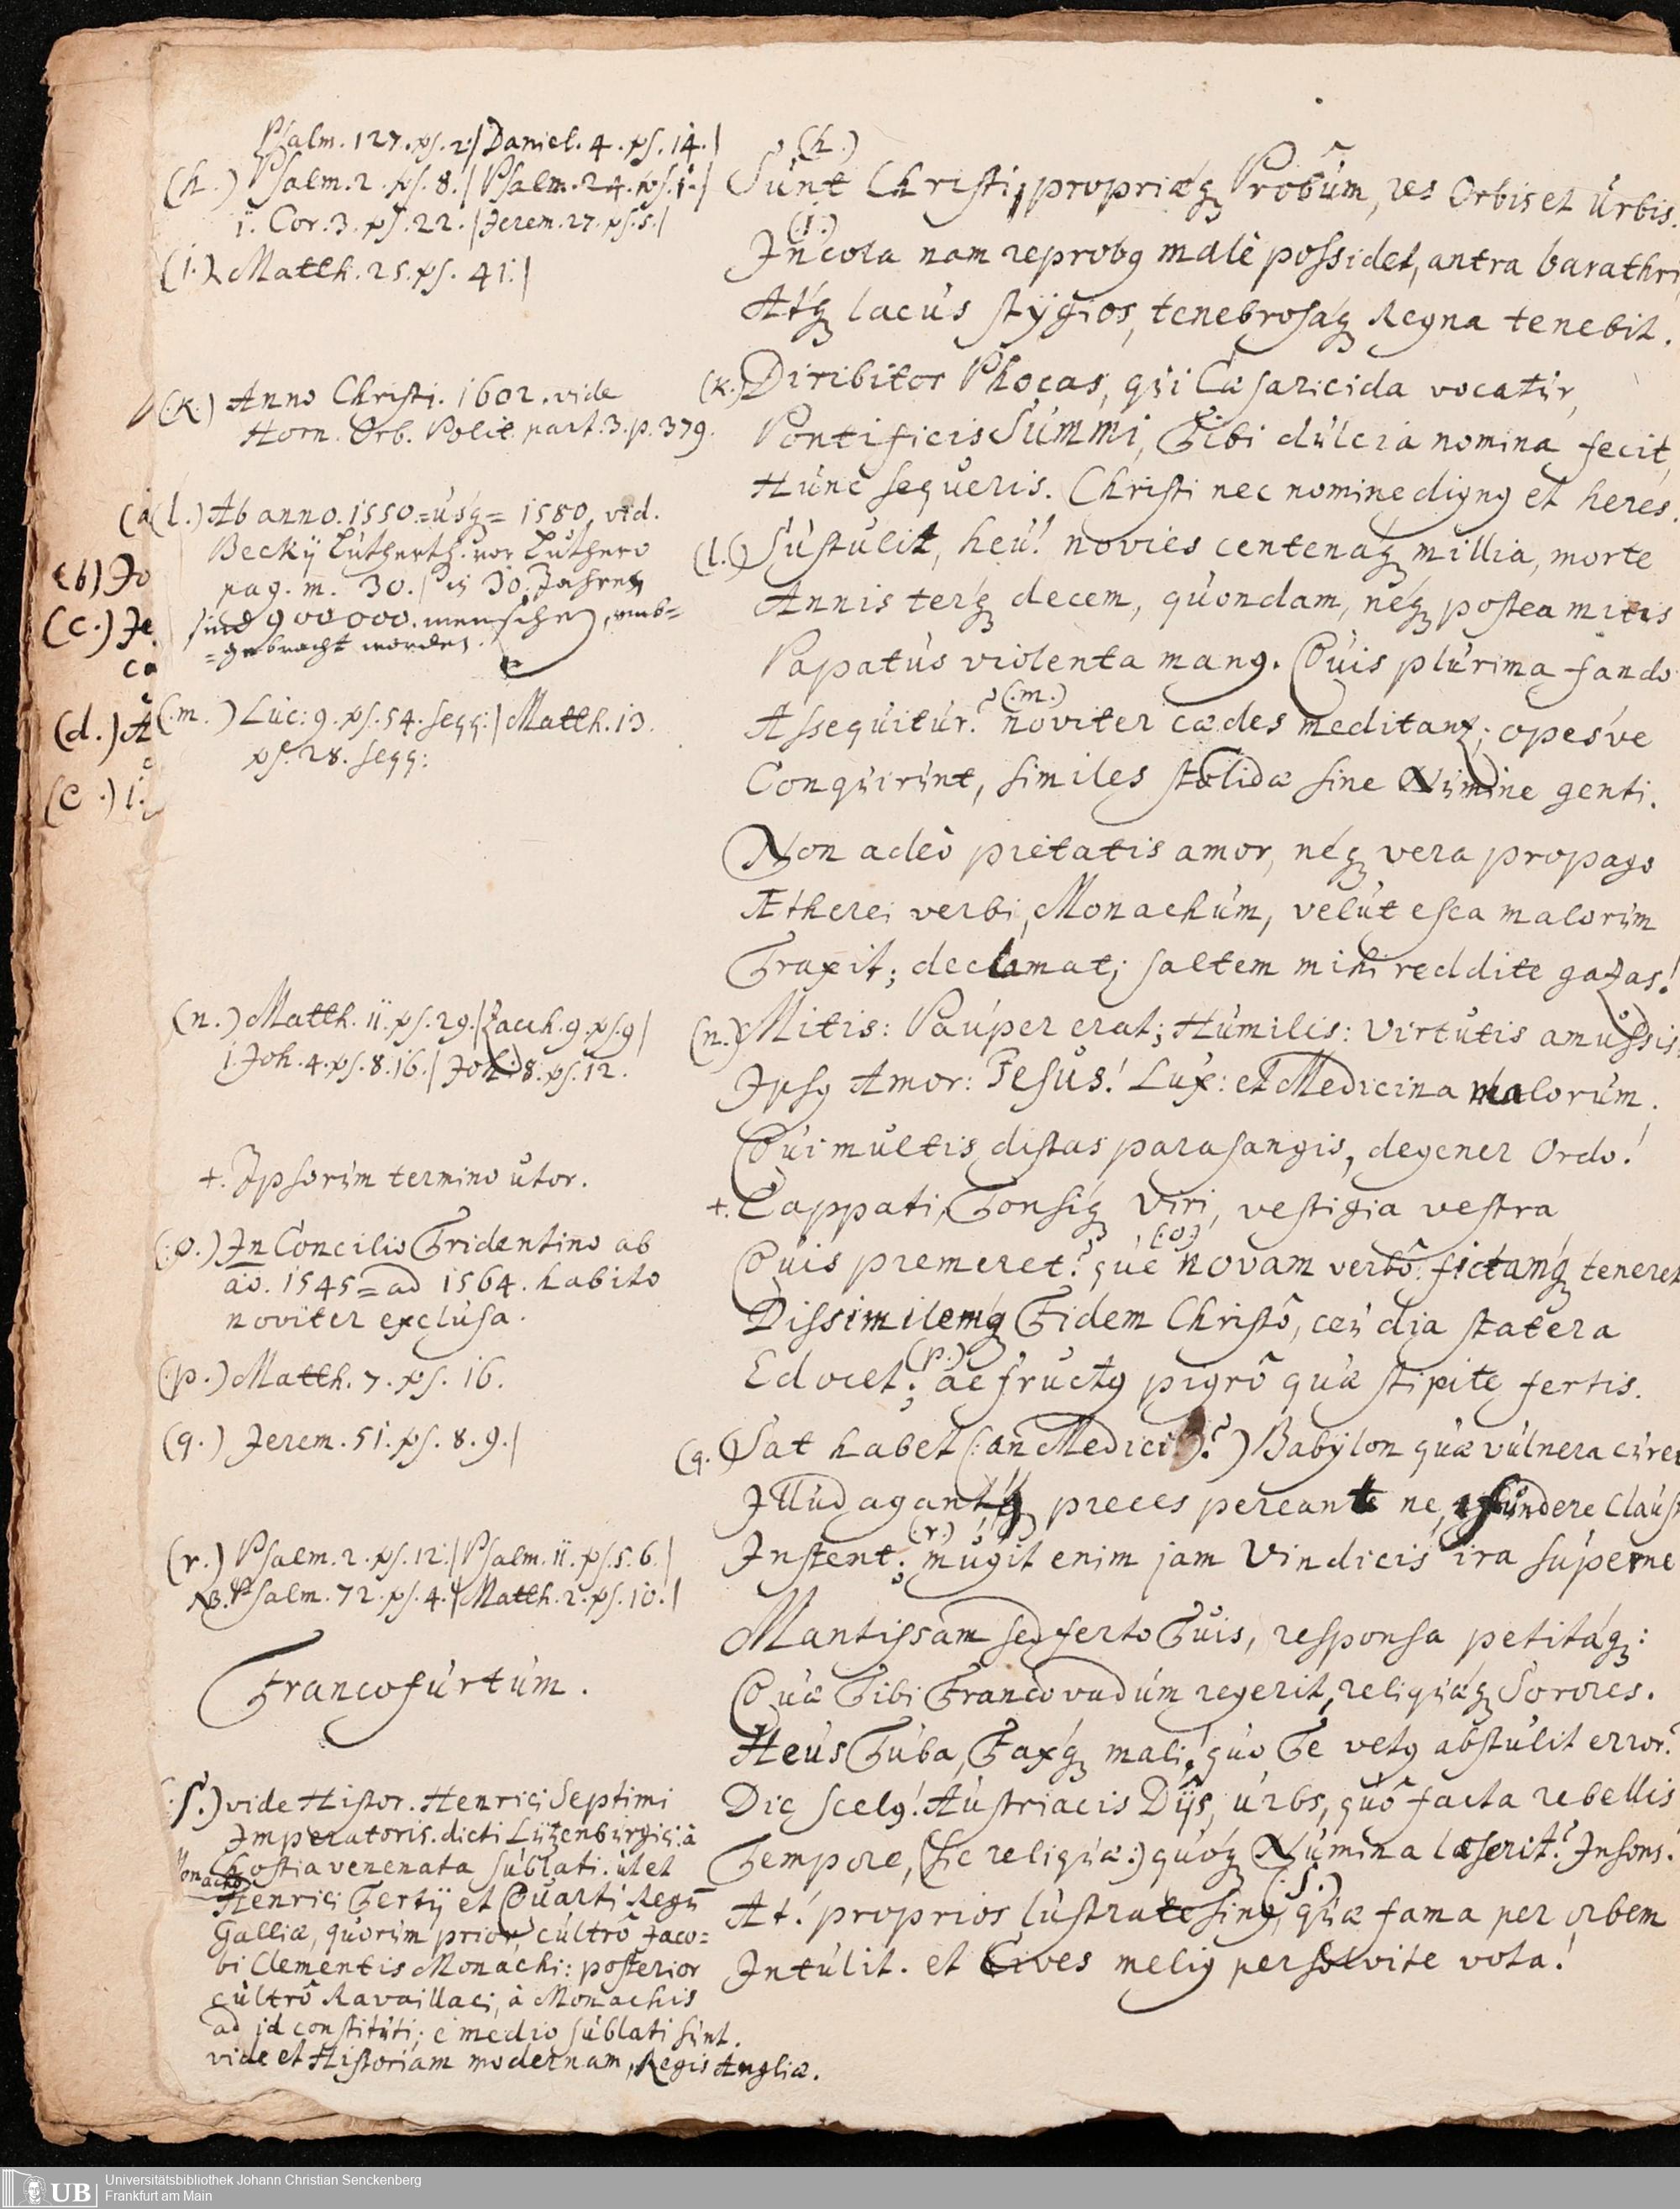 Psalm. 127. vs. 2 | Daniel. 4. vs. 14. |
(h.) Psalm. 2. vs. 8. | Psalm. 24. vs. 1. |
1. Cor. 3. vs. 22. | Jerem. 27. vs. 5. |
(i.) Matth. 25. vs. 41. |
(K.) Anno Christi. 1602. vide
Horn. Orb. Polit. part. 3. p. 379.
(l.) Ab anno. 1550.=usq= 1580. vid.
Beckÿ Lutherth. vor Luthero
pag. m. 30. | in 30. Jahren
sind 900000. menschen, umb=
=gebracht worden.
(m.) Luc: 9. vs. 54. seqq: | Matth. 13.
vs. 28. seqq:
(n.) Matth. 11. vs. 29. | Zach. 9. vs. 9 |
1. Joh. 4. vs. 8. 16. | Joh. 8. vs. 12.
+. Ipsorum termino utor.
(o.) In Concilio Tridentino ab
ao. 1545 = ad 1564. habito
noviter exclusa.
(p.) Matth. 7. vs. 16.
(q.) Jerem. 51. vs. 8. 9. |
(r.) Psalm. 2. vs. 12. | Psalm. 11. vs. 5. 6. |
NB. Psalm. 72. vs. 4. | Matth. 2. vs. 10. |
Francofurtum.
(s.) vide Histor. Henrici Septimi
Imperatoris. dicti Lützenburgici. à
Monacho
hostia venenata sublati. ut et
Henrici Tertÿ et Quarti Regū
Galliæ, quorum prior, cultrô Jaco=
bi Clementis Monachi: posterior
cultrô Ravaillaci, à Monachis
ad id constituti; è medio sublati sunt.
vide et Historiam modernam, Regis Angliæ.
(h.)
Sunt Christi, propriæq Probûm, res Orbis et Urbis.
(i.)
Incola nam reprobq malè possidet, antra barathri
Atq lacus stÿgios, tenebrosaq Regna tenebit.
(K.) Diribitor Phocas, qui Cæsaricida vocatur,
Pontificis Summi, Tibi dulcia nomina fecit,
Hunc sequeris. Christi nec nomine dignq et heres.
(l.) Sustulit, heu! novies centenaq millia, morte
Annis terq decem, quondam, neq postea mitis
Papatus violenta manq. Quis plurima fando
(m.)
Assequitur? noviter cædes meditantz; opesve
Conquirunt, similes stolidæ sine Numine genti.
Non adeò pietatis amor, neq vera propago
Ætherei verbi, Monachum, velut esca malorum
Traxit; declamat; saltem mihi reddite gazas!
(n.) Mitis: Pauper erat; Humilis: Virtutis amussis:
Ipsq Amor: Jesus! Lux: et Medicina malorum.
Qui multis distas parasangis, degener Ordo!
+. Cappati, Tonsiq Viri, vestigia vestra
(o.)
Quis premeret? quê novam verbô fictamq teneret
Dissimilemq Fidem Christô, ceu dia statera
(p.)
Edocet; ac fructq pigrô quæ stipite fertis.
(q. Sat habet (: an Medici?) Babÿlon quæ vulnera curet
Illud agant'q preces pereant ne, fundere Claust
(r.)
Instent; mugit enim jam Vindicis ira superne
Mantissam sed ferto Tuis, responsa petitaq:
Quæ Tibi Francovadum regerit, reliquæq Sorores.
Heus Tuba, Faxq mali! quo Te vetq abstulit error?
Dic scelq! Austriacis Dÿs, urbs, quô facta rebellis
Tempore, (sic reliquæ:) quoq Numina læserit? Insons!
(s.)
At! proprios lustrate sinq, quæ fama per orbem
Intulit. et Cives meliq persolvite vota!
(a
(b) Jo
(c.) Je
ca
(d.) A
(e.) 1.
UB
Universitätsbibliothek Johann Christian Senckenberg
Frankfurt am Main